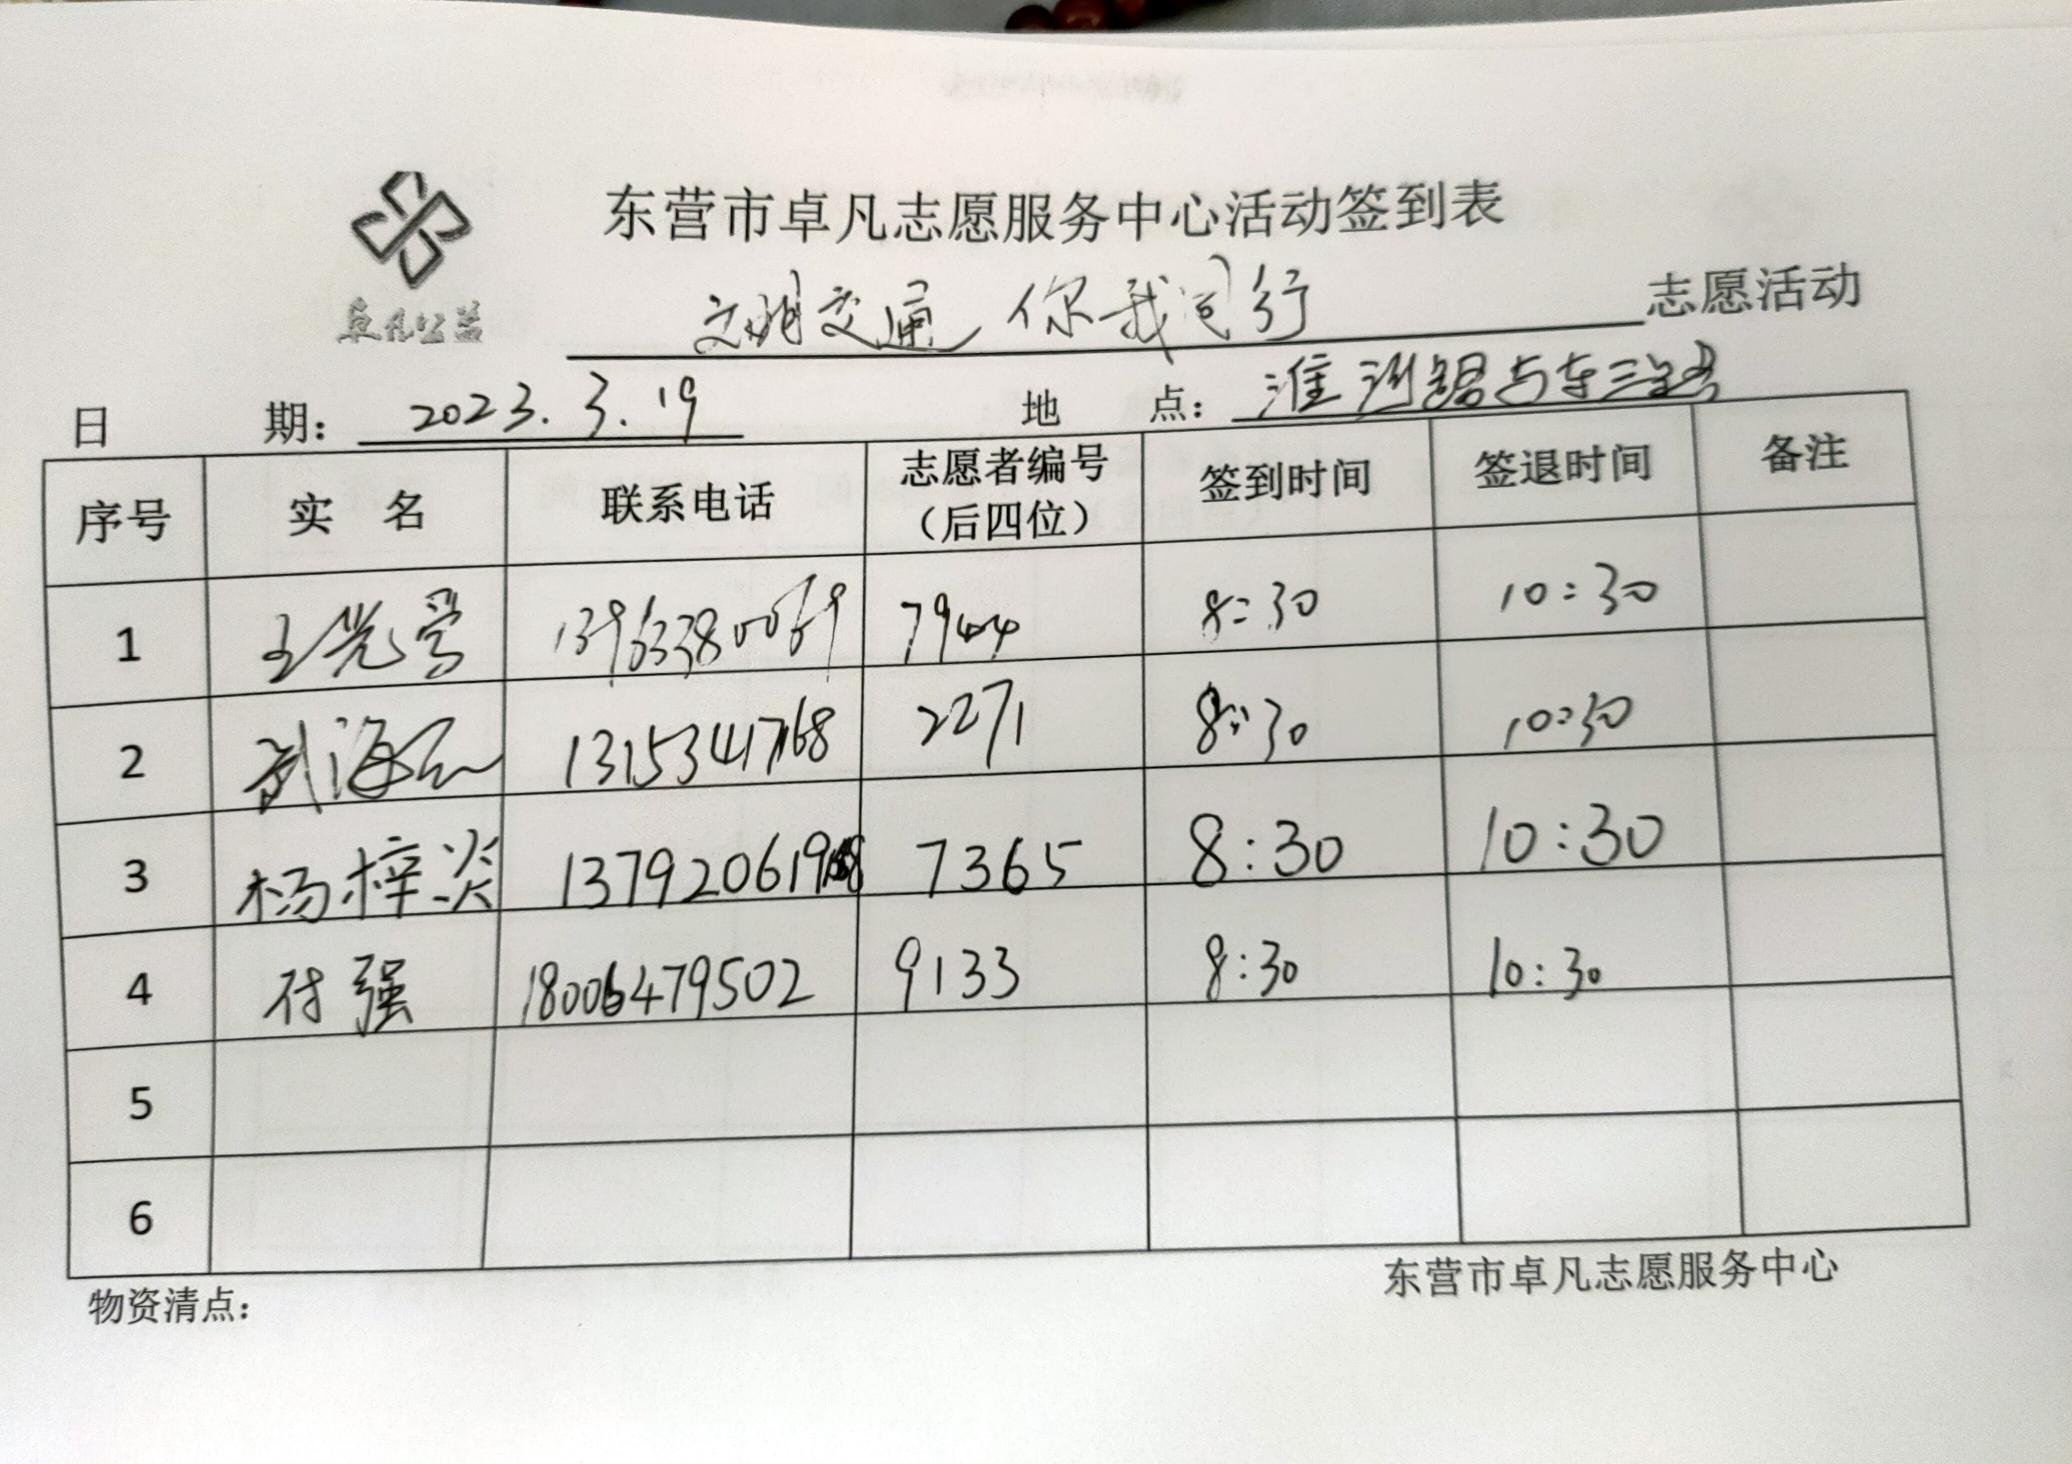 东营市卓凡志愿服务中心活动签到表
卓凡公益
文明交通 你我同行 志愿活动
日 期: 2023.3.19 地 点: 淮河路与东三路
序号 实 名 联系电话 志愿者编号(后四位) 签到时间 签退时间 备注
1 13963380069 7944 8:30 10:30
2 武海 13153417168 2271 8:30 10:30
3 杨梓炎 7365 8:30 10:30
4 付强 18006479502 9133 8:30 10:30
5
6
物资清点: 东营市卓凡志愿服务中心